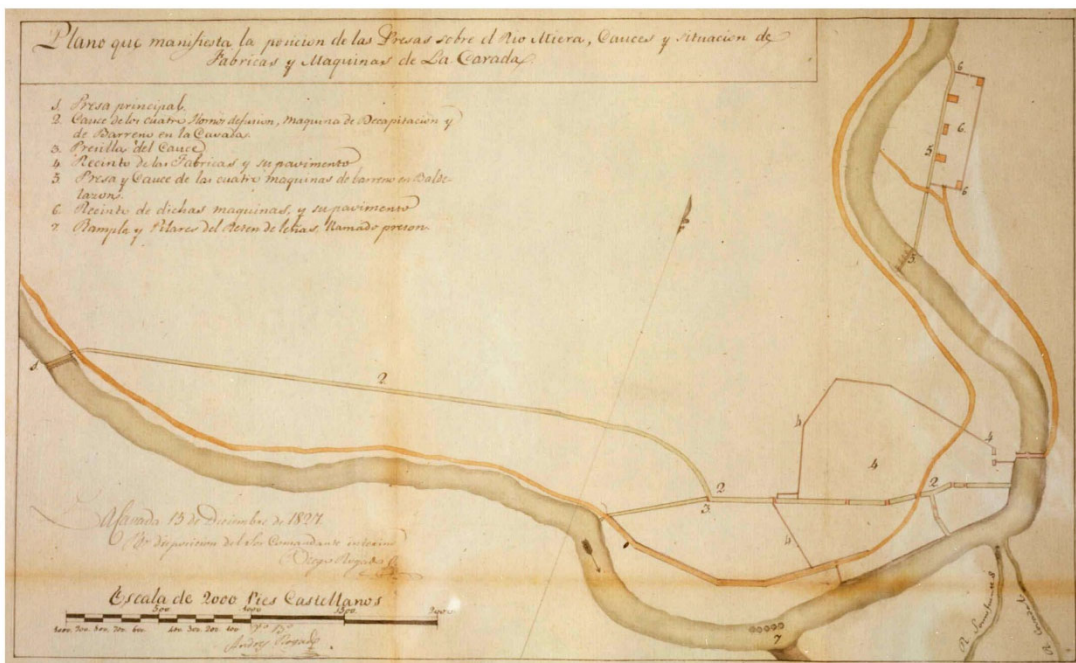 Plano que manifiesta la posicion de las Presas sobre el Rio Miera, Cauces y situacion de
Fabricas y Maquinas de La Cavada.
1. Presa principal.
2. Cauce de los cuatro Hornos de fusion, maquina de Decapitacion y
de Barreno en la Cavada.
3. Presilla del Cauce
4. Recinto de las Fabricas y su pavimento
5. Presa y Cauce de las cuatro maquinas de barreno en Balde-
lazon.
6. Recinto de dichas maquinas, y su pavimento
7. Rampla y Pilares del Reten de leñas, llamado preson.
6
6
5
6
5
1
2
4
4
4
2
2
3
4
7
La Cavada 13 de Diciembre de 1827.
Por disposicion del Sor Comandante interino
Diego Rogado
Escala de 2000 Pies Castellanos
500. 1000 1500. 2000
Vº Bº
Andres Rogado
R.
R.